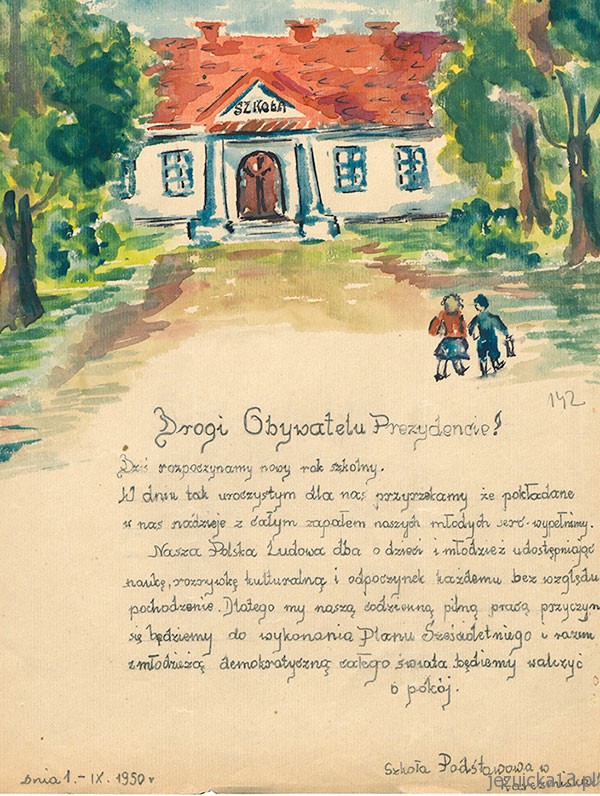 SZKOŁA
142
Drogi Obywatelu Prezydencie!
Dziś rozpoczynamy nowy rok szkolny.
W dniu tak uroczystym dla nas przyrzekamy że pokładane
w nas nadzieje z całym zapałem naszych młodych serc wypełnimy.
Nasza Polska Ludowa dba o dzieci i młodzież udostępniając
naukę, rozrywkę kulturalną i odpoczynek każdemu bez względu
pochodzenie. Dlatego my naszą codzienną pilną pracą przyczyn
się będziemy do wykonania Planu Sześcioletniego i razem
z młodzieżą demokratyczną całego świata będziemy walczyć
o pokój.
Szkoła Podstawowa w
dnia 1.-IX. 1950 r
jezuicka13.pl